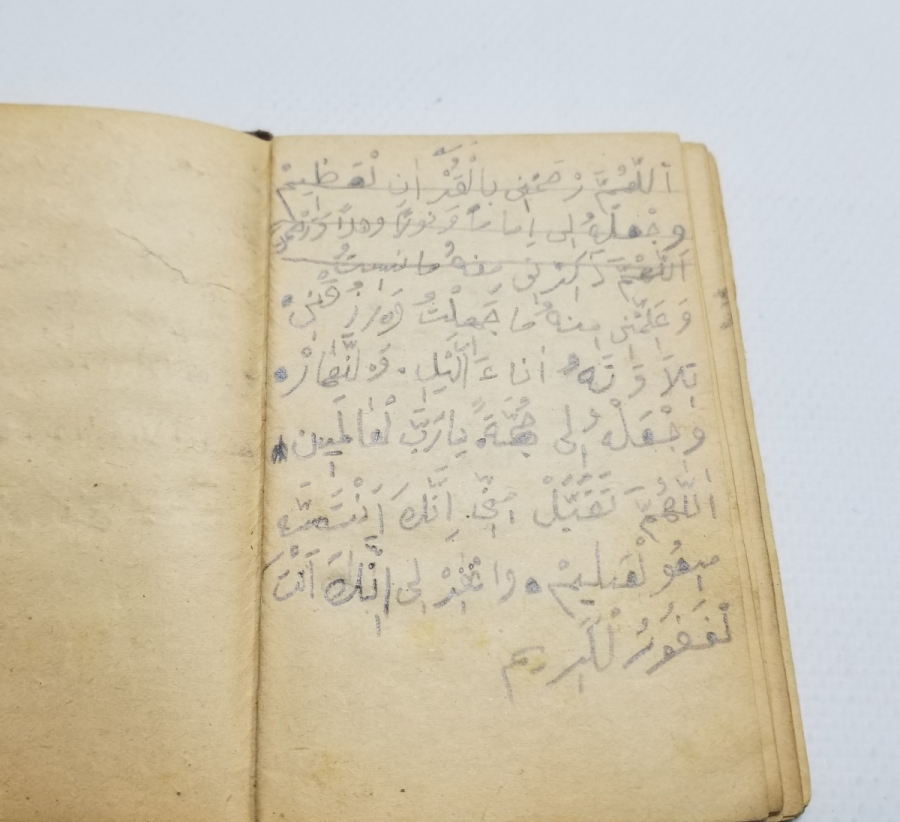 اَللّٰهُمَّ رْحَمْنِى بِالْقُرْاٰنِ لْعَظِيمْ
وَجْعَلْهُ لِى اِمَامًا وَنُورًا وَهُدًا وَرَحْمَةً
اَللّٰهُمَّ ذَاكِرْنِى مِنْهُ مَا نَسِيتُ
وَعَلِّمْنِى مِنْهُ مَا جَهِلْتُ وَرْزُقْنِى
تِلَاوَتَهُ اٰنَاءَ الَّيْلِ وَ لنَّهَارْ
وَجْعَلْهُ لِى حُجَّةً يَارَبَّ لْعَالَمِين
اَللّٰهُمَّ تَقَبَّلْ مِنِّى اِنَّكَ اَنْتَ
لْعَلِيمْ. لِى اِنَّكَ اَنْتَ
لْغَفُورُ لْكَرِيم